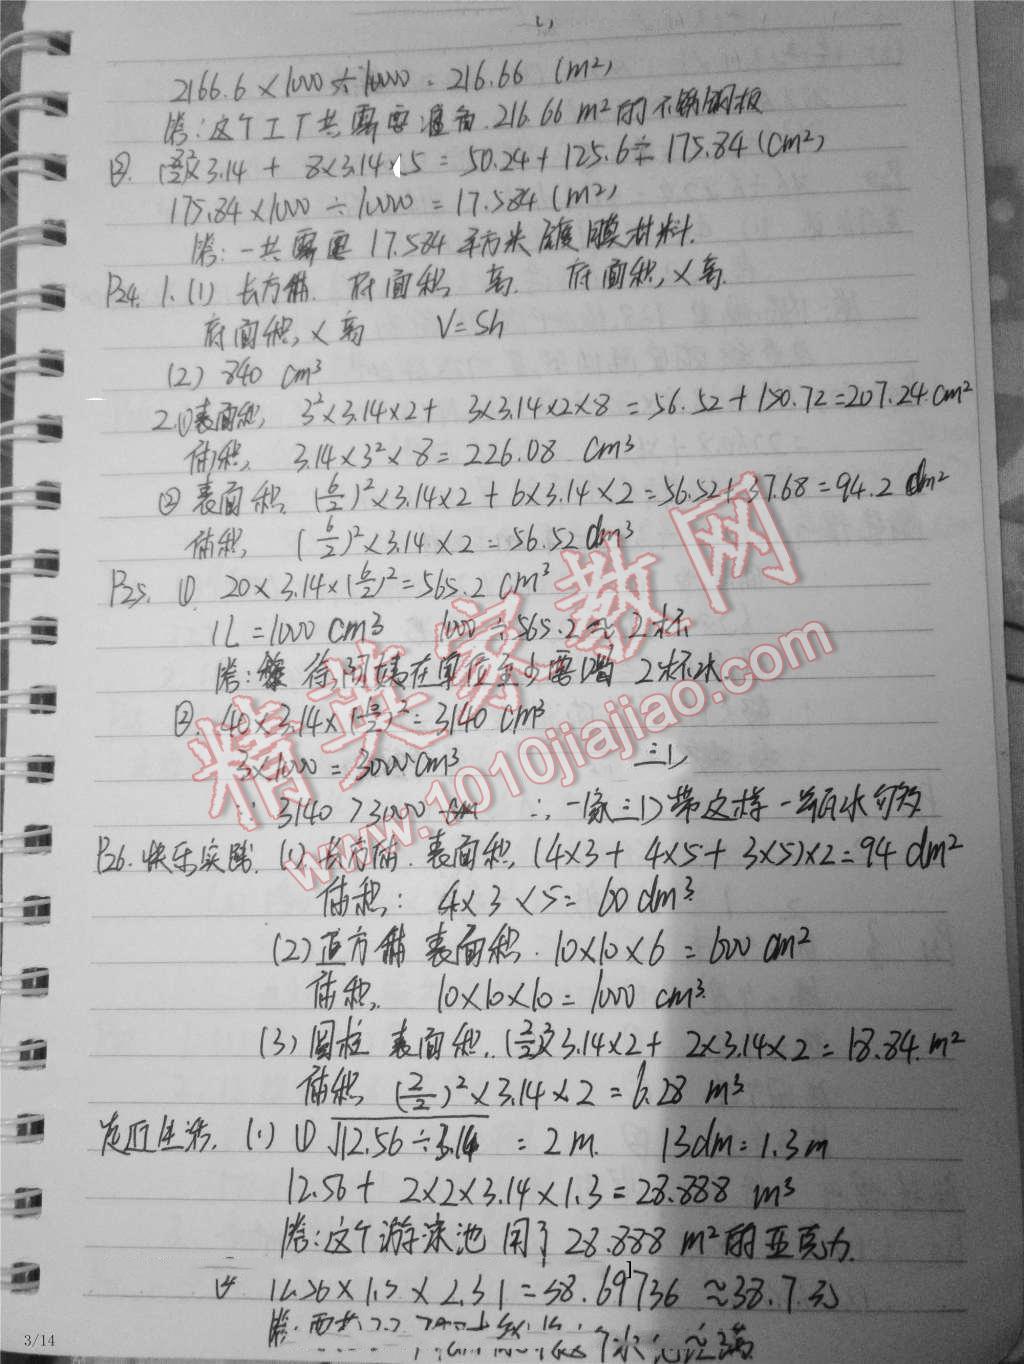 2166.6×1000÷10000=216.66 (m²)
答:这个工厂共需要准备216.66 m²的不锈钢板
②. (8/2)²×3.14 + 8×3.14×5 = 50.24+125.6÷175.84(cm²)
175.84×1000÷10000=17.584(m²)
答:一共需要17.584平方米镀膜材料.
P24. 1.(1) 长方体. 底面积 高. 底面积×高.
底面积×高 V=Sh
(2) 840 cm³
2.①表面积, 3²×3.14×2+ 3×3.14×2×8=56.52+150.72=207.24cm²
体积, 3.14×3²×8=226.08 cm³
②表面积 (6/2)²×3.14×2+6×3.14×2=56.52+37.68=94.2 dm²
体积, (6/2)²×3.14×2=56.52dm³
P25. ①. 20×3.14×(6/2)²=565.2 cm³
1L=1000 cm³ 1000÷565.2≈2杯
答: 徐阿姨在单位至少需喝2杯水.
②. 40×3.14×( /2)²=3140 cm³
3×1000=3000cm³
∵ 3140>3000 cm ∴一家三口带这样一 水 三口
P26.快乐实践. (1)长方体.表面积,(4×3+4×5+3×5)×2=94 dm²
体积: 4×3×5=60dm³.
(2)正方体 表面积.10×10×6=600 cm²
体积. 10×10×10=1000 cm³.
(3)圆柱 表面积.(2/2)²×3.14×2+ 2×3.14×2=18.84.m²
体积 (2/2)²×3.14×2=6.28 m³
走近生活. (1) ① √12.56÷3.14 =2m. 13dm=1.3m
12.56+ 2×2×3.14×1.3=28.888 m³
答:这个游泳池用了28.888m²的亚克力.
×2.31=38.69736≈38.7元
答:
精英家教网
www.1010jiajiao.com
3/14